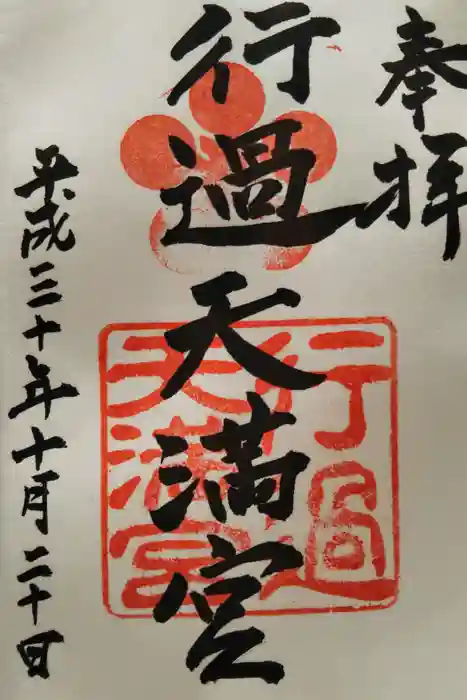 奉拝
行過天満宮
平成三十年十月二十日
行過
天満宮